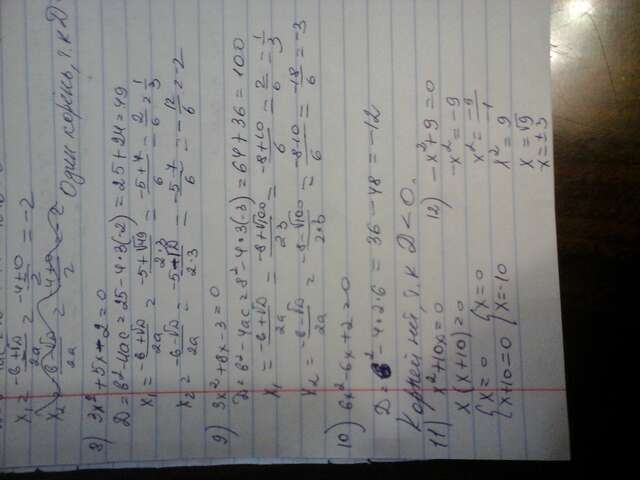 x₁ = (-b+√D)/2a = (-4+0)/2 = -2
x₂ = (-b-√D)/2a = (-4+0)/2 = -2 Один корінь, т.к D
8) 3x²+5x-2=0
D=b²-4ac=25-4·3(-2)=25+24=49
x₁ = (-b+√D)/2a = (-5+√49)/2·3 = (-5+7)/6 = 2/6 = 1/3
x₂ = (-b-√D)/2a = (-5-√D)/2·3 = (-5-7)/6 = -12/6 = -2
9) 3x²+8x-3=0
D=b²-4ac=8²-4·3(-3)=64+36=100
x₁ = (-b+√D)/2a = (-8+√100)/2·3 = (-8+10)/6 = 2/6 = 1/3
x₂ = (-b-√D)/2a = (-8-√100)/2·3 = (-8-10)/6 = -18/6 = -3
10) 6x²-6x+2=0
D=b²-4·2·6=36-48=-12
Корней ней, т.к D<0.
11) x²+10x=0
x(x+10)=0
{x=0 {x=0
{x+10=0 {x=-10
12) -x²+9=0
-x²=-9
x²=-9/-1
x²=9
x=√9
x=±3